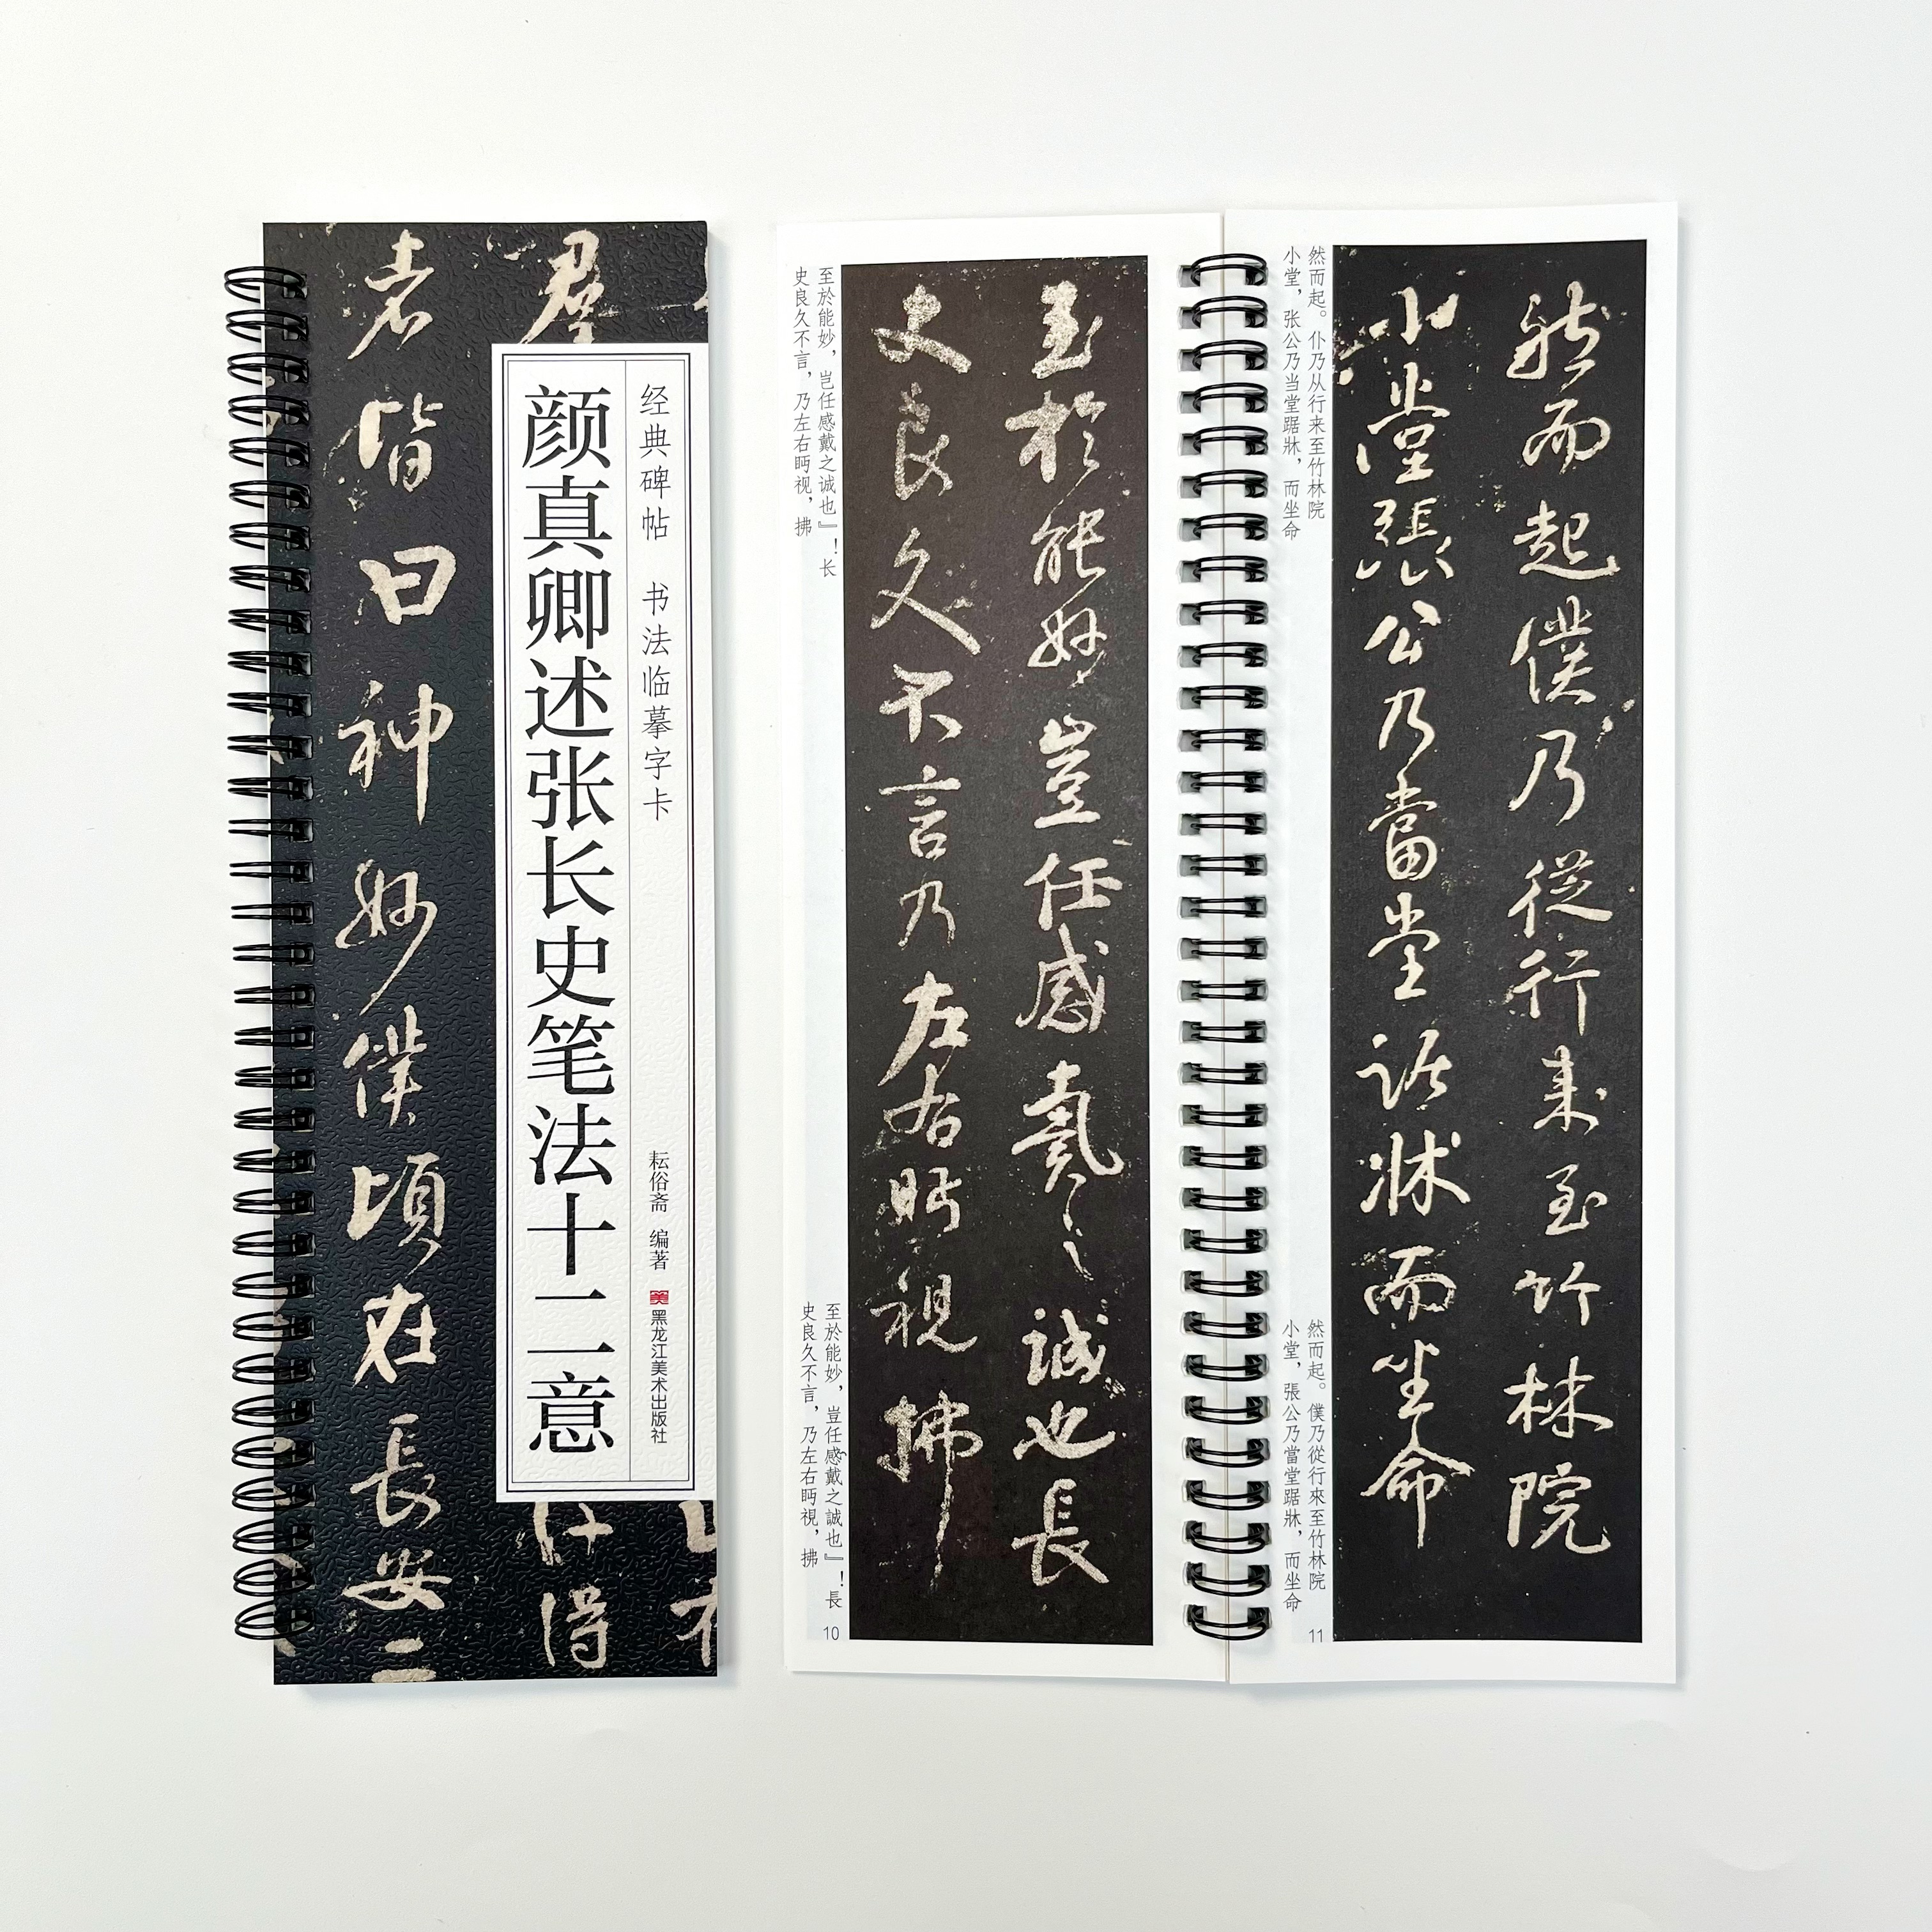 经典碑帖 书法临摹字卡
颜真卿述张长史笔法十二意
耘俗斋 编著
美 黑龙江美术出版社
群
者皆曰神妙僕頃在長安二
得
至於能妙，岂任感戴之诚也』！长
史良久不言，乃左右眄视，拂
至於能妙豈任感戴之誠也長
史良久不言乃左右眄視拂
至於能妙，豈任感戴之誠也』！長
史良久不言，乃左右眄視，拂
10
然而起。仆乃从行来至竹林院
小堂，张公乃当堂踞牀，而坐命
然而起僕乃從行来至竹林院
小堂張公乃當堂踞牀而坐命
然而起。僕乃從行來至竹林院
小堂，張公乃當堂踞牀，而坐命
11